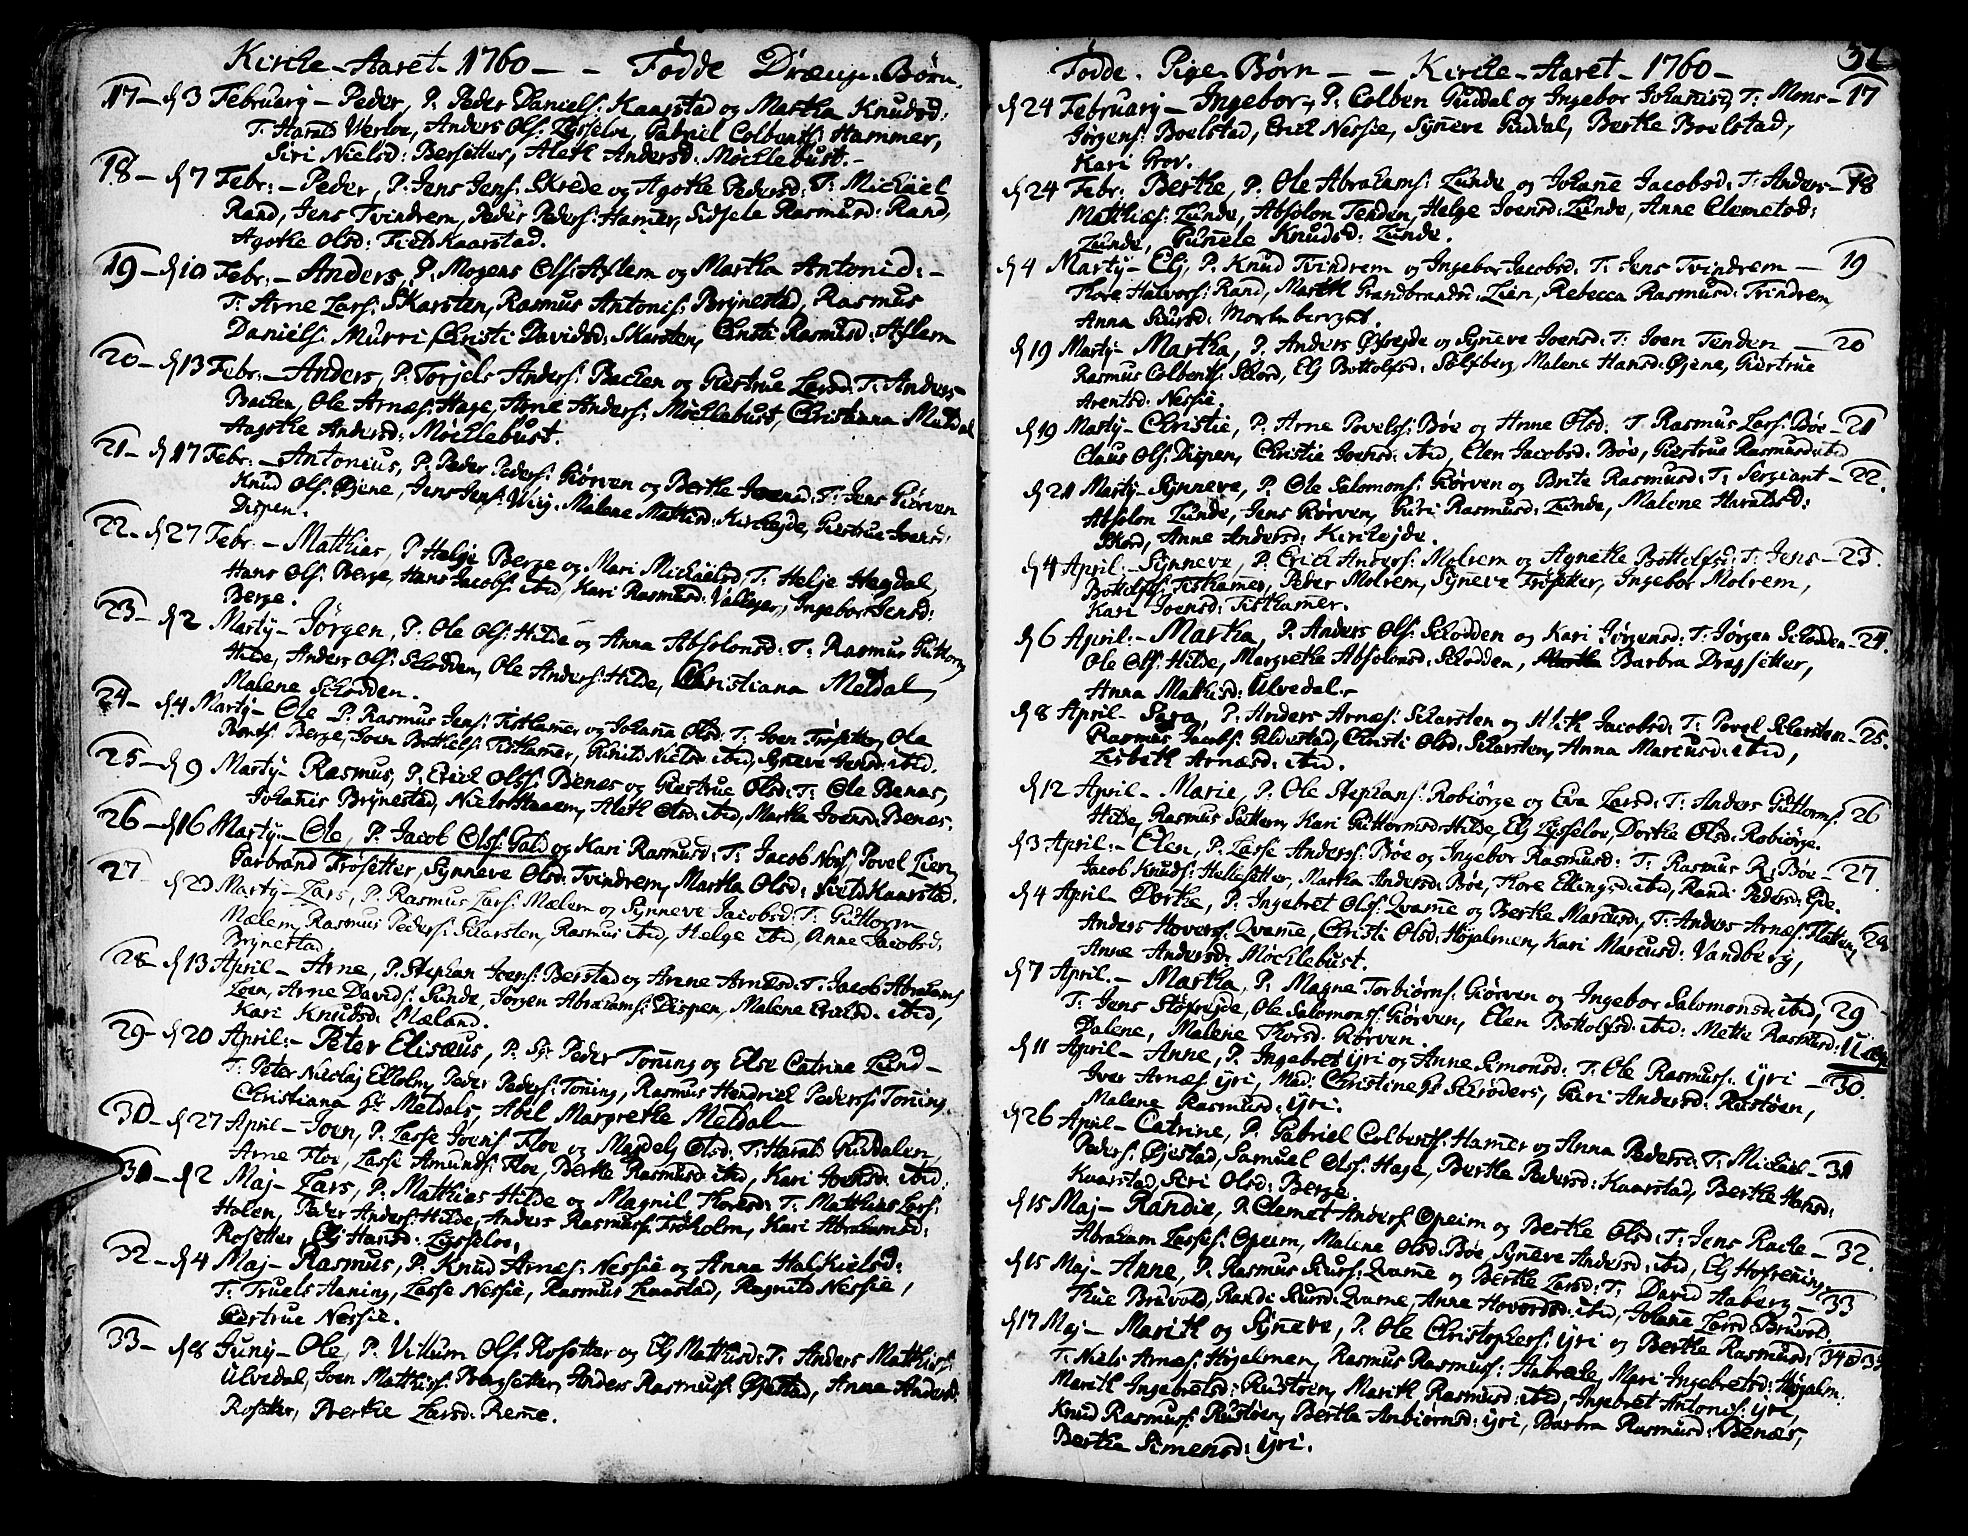 Kirche-Aaret-1760 - - Fødde Drænge-Børn.
17- d 3 February- Peder, P. Peder Daniels: Kaarstad og Martha Knudsd:
T. Harald Werloe, Anders Ols: Lysseloe, Gabriel Colbents: Hammer,
Siri Nielsd: Bersetter, Aleth Andersd: Møchlebust.-
18- d 7 Febr:- Peder, P. Jens Jens: Skrede og Agothe Pedersd: T. Michäel
Rand, Jens Tvindrem, Peder Peders: Hamer, Sidsele Rasmusd: Rand,
Agothe Olsd: Kaarstad.
19- d 10 Febr:- Anders, P. Mogens Ols: Aflem og Martha Antonid:-
T. Arne Lars: Skarsten, Rasmus Antonis: Brynestad, Rasmus
Daniels: Murri Christi Davidsd: Skarsten, Christi Rasmusd: Aflem
20- d 13 Febr:- Anders, P. Torjels Anders: Bachen og Giertrue Larsd: T. Anders
Bachen, Ole Arnæs: Hage, Arne Anders: Møchlebust, Christianna Muldal
Angothe Andersd: Møchlebust.
21- d 17 Febr:- Antonius, P. Peder Peders: Giørven og Berthe Joensd: T. Jens Giørven
Knud Ols: Øjene, Jens Jens: Wiig, Malene Mathisd: Kirchejde, Giertrue Joensd:
Dispen.
22- d 27 Febr:- Matthias, P. Helje Berge og Mari Michäelsd, T. Helje Hagdal,
Hans Ols: Berge, Hans Jacobs: ibid, Kari Rasmusd: Vallager, Ingebor Jensd:
Berge.
23- d 2 Marty- Jørgen, P. Ole Ols: Hilde og Anna Absolonsd: T. Rasmus Guttorm
Hilde, Anders Ols: Schodden, Ole Anders: Hilde, Christiana Meldal,
Malene Schodden.
24- d 4 Marty- Ole P. Rasmus Jens: Tisthamer og Johana Olsd: T. Joen Trøsetter, Ole
Bents: Berge, Joen Bothels: Tisthamer, Gunild Nielsd ibid, Syneve Jensd: ibid.
25- d 9 Marty- Rasmus, P. Erich Olss: Benæs og Giertrue Olsd: T. Ole Benæs,
Johanis Brynestad, Niels Haaem, Aleth Olsd: ibid, Martha Joensd: Benæs.
26- d 16 Marty- Ole, P. Jacob Ols: Gald og Kari Rasmusd: T. Jacob Nos, Povel Lien,
Garbrand Trøsetter, Synneve Olsd: Tvindrem, Martha Olsd: Kaarstad.
27- d 20 Marty- Lars, P. Rasmus Lars: Mælem og Synneve Jacobsd: T. Guttorm
Mælem, Rasmus Peders: Skarsten, Rasmus ibid, Helge ibid, Anne Jacobsd:
Brynestad.
28- d 13 April- Arne, P. Stephan Joens: Berstad og Anne Arnæsd: T. Jacob Abrahams
Loen, Arne Davids: Sunde, Jørgen Abrahams: Dispen, Malene Erichsd: ibid,
Kari Knudsd: Mæland.
29- d 20 April:- Peter Elisæus, P. Peder Toning og Else Catrine Lund-
T. Peter Nicolaj Elholm, Peder Peders: Toning, Rasmus Hendrich Peders: Toning,
Christiana Meldals, Abil Margrethe Meldal-
30- d 27 April- Joen, P. Lasse Joens: Floe og Magdely Olsd: T. Harald Guddalen,
Arne Floe, Lasse Amunds: Floe, Berthe Rasmusd: ibid, Kari Joensd: ibid.
31- d 2 Maj- Lars, P. Mathias Hilde og Magnil Thoresd: T. Matthias Lars:
Holen, Peder Anders: Hilde, Anders Rasmus: Trøholm, Kari Abrahamsd:
Rosetter, Elj Hansd: Lysseloe,
32- d 4 Maj- Rasmus, P. Knud Arnæs: Nessie og Anna Halkielsd:
T. Truels Haning, Lasse Nessie, Rasmus Lunastad, Ragnild Nessie,
Giertrue Nessie.
33- d 8 Juny- Ole, P. Villum Ols: Rosetter og Elj Mathisd: T. Anders Mathis:
Ulvedal, Joen Mathis: Dragsetter, Anders Rasmus: Øjestad, Anna Andersd:
Rosetter, Berthe Larsd: Reme.
52
Fødde. Pige-Børn - - Kirche-Aaret-1760-
d 24 February- Ingebor, P. Colben Guddal og Ingebor Johanisd, T. Mons- 17
Jørgens: Boelstad, Erich Nessie, Syneve Guddal, Berthe Boelstad,
Kari Grov.
d 24 Febr: Berthe, P. Ole Abrahams: Lunde og Johane Jacobsd: T. Anders- 18
Matthies: Lunde, Absolon Tenden, Helge Joensd: Lunde, Anne Clemetsd:
Lunde, Gunele Knudsd: Lunde.
d 4 Marty- Elj, P. Knud Tvindrem og Ingebor Jacobsd: T. Jens Tvindrem- 19
Thore Halvors: Rand, Marith Grandbrandsd: Lien, Rebecca Rasmusd: Tvindrem,
Anna
d 19 Marty- Martha, P. Anders Øvrejde og Syneve Joensd: T. Joen Tenden- 20
Rasmus Colbents: Schord, Elj Bottolfsd: Solsberg, Malene Hansd: Øjene, Giertrue
Arentsd: Nessie.
d 19 Marty- Christie, P. Arne Povels: Bøe og Anne Olsd: T. Rasmus Lars: Bøe- 21
Claus Ols: Dispen, Christie Joensd: ibid, Elen Jacobsd: Bøe, Giertrue Rasmusd: ibid
d 21 Marty- Synneve, P. Ole Salomons: Giørven og Brite Rasmusd: T. Sergiant- 22.
Absolon Lunde, Jens Giørven, Guri Rasmusd: Lunde, Malene Haraldsd:
Schord, Anne Andersd: Kirchejde.
d 4 April- Synneve, P. Erich Anders: Molrem og Agnethe Bottolfsd: T. Jens- 23.
Bottolfs: Tisthamer, Peder Molrem, Syneve Trøsetter, Ingebor Molrem,
Kari Joensd: Tisthamer.
d 6 April:- Martha, P. Anders Ols: Schodden og Kari Jørgensd: T. Jørgen Schodden- 24.
Ole Ols: Hilde, Margrethe Absolonsd: Schodden, Barbra Dragsetter,
Anna Mathisd: Ulvedal.-
d 8 April- Sara, P. Anders Arnæs: Skarsten og Aleth Jacobsd: T. Povel Skarsten- 25.
Rasmus Jacobs: Gildestad, Christi Olsd: Skarsten, Anna Marcusd: ibid,
Lisbeth Arnæsd: ibid.
d 12 April- Marie, P. Ole Stephans: Robiørge og Eva Larsd: T. Anders Guttorms: 26
Hilde, Rasmus Guttorm, Kari Guttormsd: Hilde, Elj Lysseloe, Dorthe Olsd: Robiørge.
d 3 April:- Elen, P. Lasse Anders: Bøe og Ingebor Rasmusd: T. Rasmus R: Bøe- 27.
Jacob Knuds: Hellesetter, Martha Andersd: Bøe, Thore Ellingsd: ibid, Randi Pedersd: Gie.
d 4 April- Dorthe, P. Ingebret Ols: Qvame og Berthe Marcusd: T. Anders Arnæs: Flatten, 28
Anders Hovers: Qvame, Christi Olsd: Højalmen, Kari Marcusd: Vandberg,
Anne Andersd: Møchlebust.
d 7 April.- Martha, P. Magne Torbiørns: Giørven og Ingebor Salomonsd: ibid, 29
T. Jens Støfrejde, Ole Salomons: Giørven, Elen Bottolfsd: ibid: Mette Rasmusd:
Dalene, Malene Thorsd: Giørven.
d 11 April- Anne, P. Ingebret Yri og Anne Simonsd: T. Ole Rasmus: Yri- 30.
Iver Arnæs Yri, Mad: Christine Schrøders, Guri Andersd: Rustøen,
Malene Rasmusd: Yri.
d 26 April- Catrine, P. Gabriel Colbents: Hamer og Anna Pedersd: T. Michäel- 31
Peders: Øjestad, Samuel Ols: Hage, Berthe Pedersd: Kaarstad, Berthe Hansd:
Kaarstad, Siri Olsd: Berge.
d 15 Maj- Randie, P. Clemet Anders: Opeim og Berthe Olsd: T. Jens Rache- 32.
Abraham Lasses: Opeim, Malene Olsd: Bøe, Syneve Andersd: ibid, Elj Hofrening,
d 15 Maj- Anne, P. Rasmus Siurs: Qvame og Berthe Larsd: T. David Aaberg- 33
Thue Bruvold, Randi Siursd: Qvame, Anne Hovorsd: ibid, Johane Larsd: Bruvold.
d 17 Maj- Marith og Syneve, P. Ole Christophers: Yri og Berthe Rasmusd: 34 & 35
T. Niels Arnæs: Højalmen, Rasmus Rasmus: Aabrekke, Mari Ingebretsd: Højalm.
Marith Ingebretsd: Rustøen, Marith Rasmusd: ibid, Ingebret Antonis: Yri,
Knud Rasmus: Rustøen, Berthe Anbiørnsd: Yri, Barbra Rasmusd: Benæs,
Berthe Simensd: Yri.